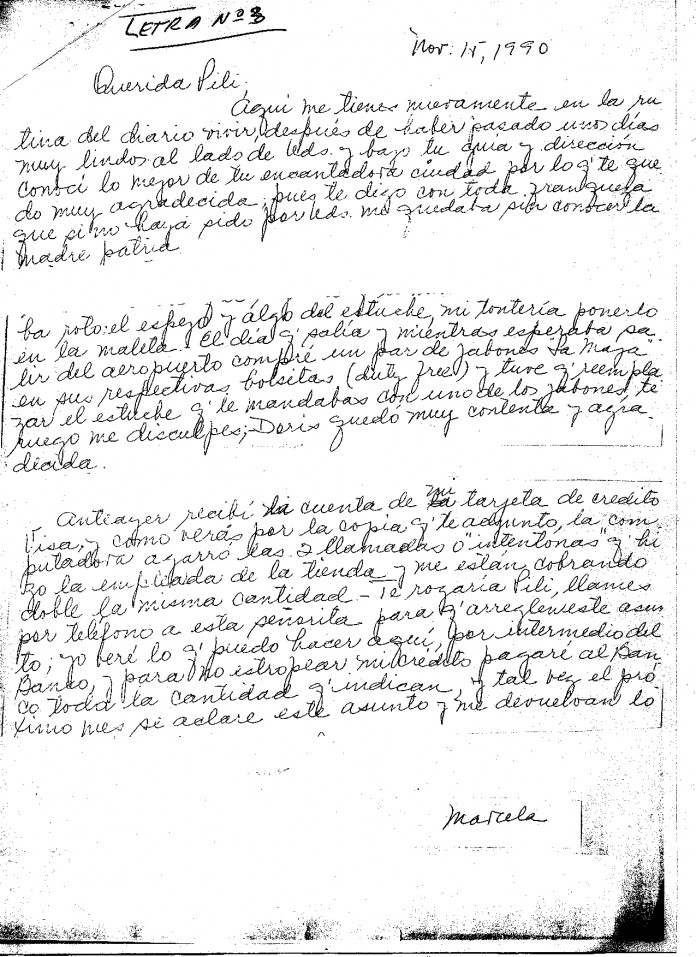 LETRA Nº 3
Nov. 15, 1990
Querida Pili,
Aqui me tienes nuevamente en la ru
tina del diario vivir, después de haber pasado unos días
muy lindos al lado de Uds. y bajo tu guia y dirección
conocí lo mejor de tu encantadora ciudad por lo q' te que
do muy agradecida, pues te digo con toda franqueza
que si no haya sido por uds. me quedaba sin conocer la
madre patria.
ba roto: el espejo y algo del estuche, mi tontería ponerlo
en la maleta. El día q' salía y mientras esperaba sa
lir del aeropuerto compré un par de jabones "La Maja"
en sus respectivas bolsitas (duty free) y tuve q' reempla
zar el estuche q' le mandabas con uno de los jabones, te
ruego me disculpes; Doris quedó muy contenta y agra
decida.
Anteayer recibí la cuenta de mi tarjeta de credito
Visa, y como verás por la copia q' te adjunto, la com-
putadora agarró las 2 llamadas o "intentonas" q' hi
zo la empleada de la tienda y me están cobrando
doble la misma cantidad - Te rogaría Pili, llames
por teléfono a esta señorita para q' arreglen este asun
to; yo veré lo q' puedo hacer aquí, por intermedio del
Banco, y para no estropear mi crédito pagaré al Ban
co toda la cantidad q' indican, y tal vez el pró
ximo mes se aclare este asunto y me devuelvan lo
Marcela